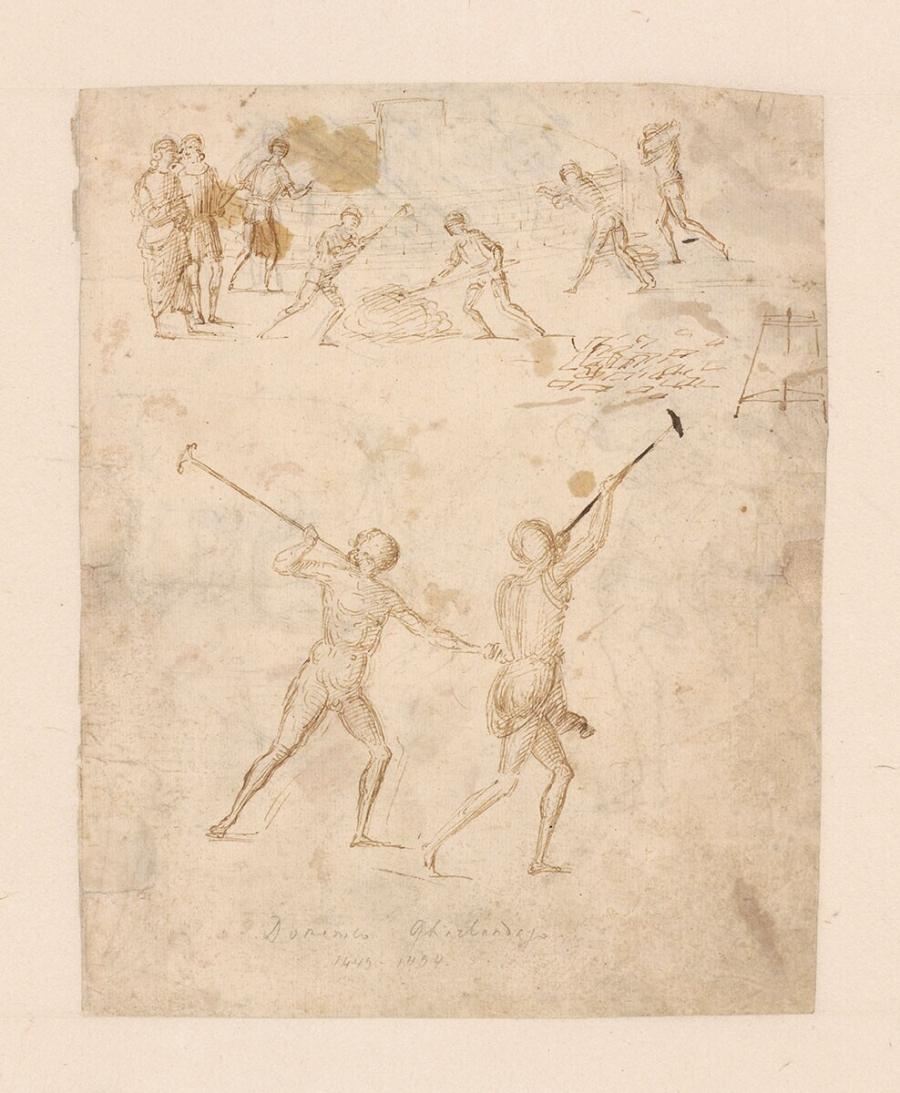 Domenico Ghirlandajo.
1449-1494.